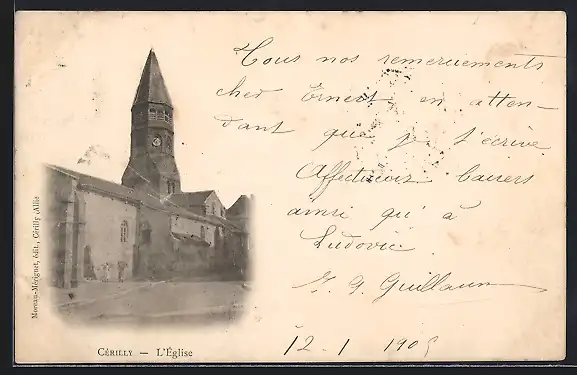 Tous nos remerciements
cher Ernest en atten-
dant que je t'écrive
Affectueux baisers
ainsi qu'à
Ludovic
G. Guillaum
12-1 1905
Moreau-Mériguet, édit., Cérilly, Allie
CÉRILLY — L'Église